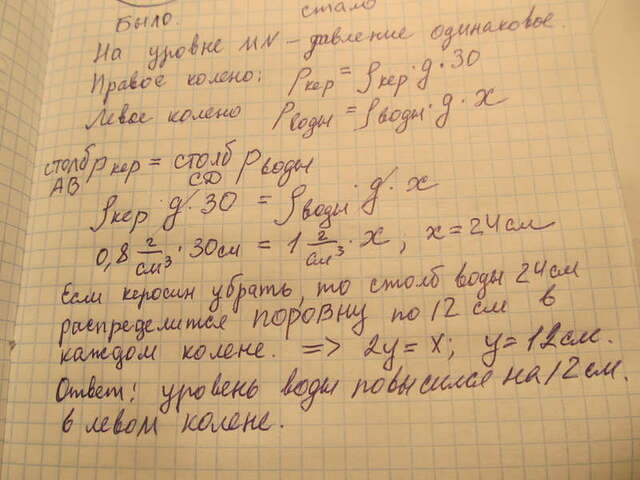 Было. стало
На уровне MN – давление одинаковое.
Правое колено: Pкер = ρкер · g · 30
Левое колено Pводы = ρводы · g · x
столб Pкер = столб Pводы
AB CD
ρкер · g · 30 = ρводы · g · x
0,8 г/см³ · 30см = 1 г/см³ · x ; x = 24 см
Если керосин убрать, то столб воды 24 см
распределится поровну по 12 см в
каждом колене. => 2y = x; y = 12 см.
Ответ: уровень воды повысился на 12 см.
в левом колене.